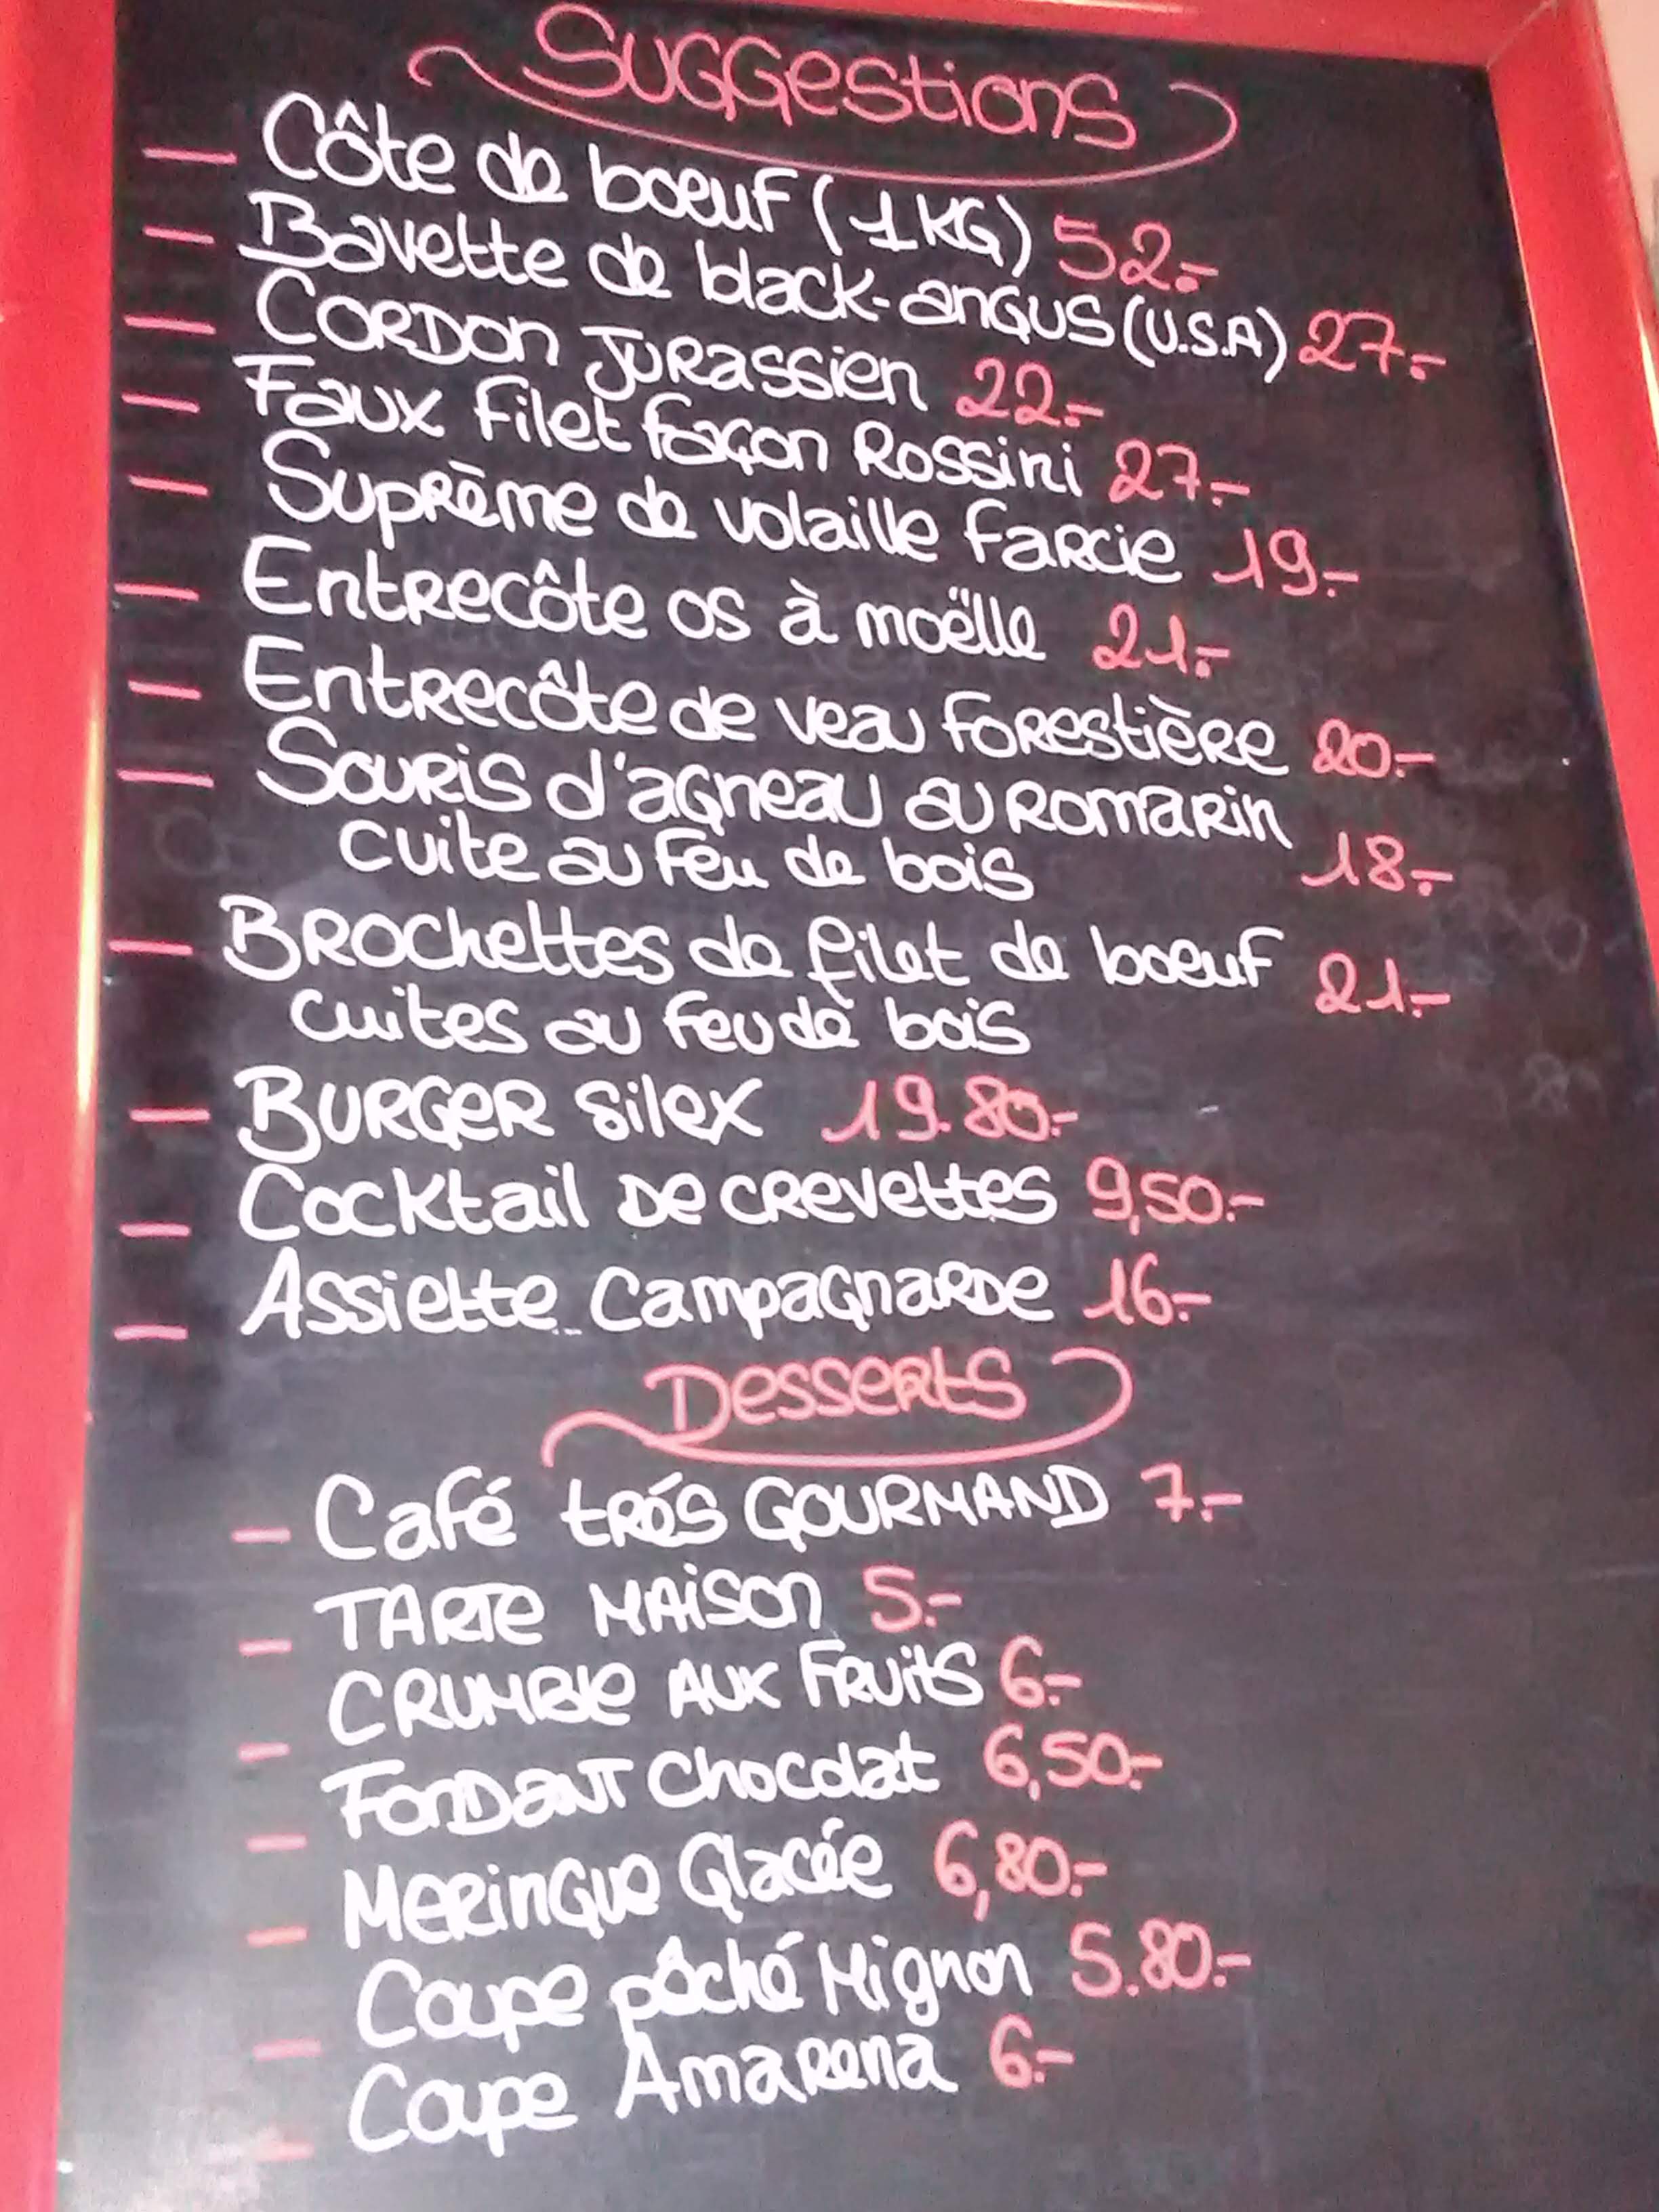 Suggestions
- Côte de boeuf (1KG) 52.-
- Bavette de black-angus (U.S.A) 27.-
- Cordon Jurassien 22.-
- Faux Filet façon Rossini 27.-
- Suprême de volaille farcie 19.-
- Entrecôte os à moëlle 21.-
- Entrecôte de veau forestière 20.-
- Souris d'agneau au romarin
cuite au feu de bois 18.-
- Brochettes de filet de boeuf 21.-
cuites au feu de bois
- Burger Silex 19.80.-
- Cocktail de crevettes 9,50.-
- Assiette Campagnarde 16.-
Desserts
- Café trés GOURMAND 7.-
- TARTE MAISON 5.-
- CRUMBLE AUX FRUITS 6.-
- Fondant Chocolat 6,50.-
- Meringue Glacée 6,80.-
- Coupe pêché Mignon 5.80.-
- Coupe Amarena 6.-